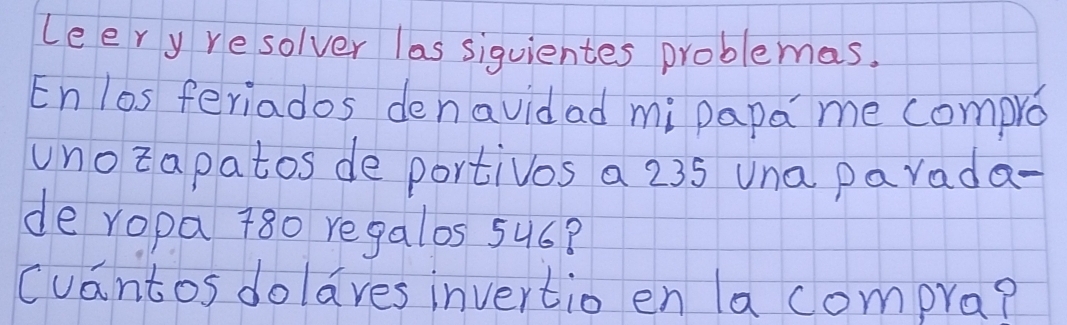 Leer y resolver las siguientes problemas.
En los feriados denavidad mi papá me compró
uno zapatos de portivos a 235 una parada-
de ropa 780 regalos 546?
Cuántos doláres invertio en la compra?